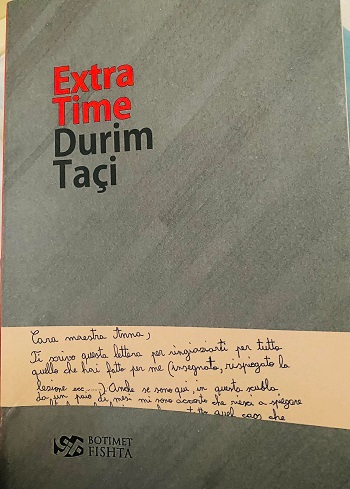 Extra
Time
Durim
Taçi
Cara maestra Anna,
Ti scrivo questa lettera per ringraziarti per tutto
quello che hai fatto per me (insegnato, rispiegato la
lezione ecc......). Anche se sono qui, in questa scuola
da un paio di mesi mi sono accorto che riesci a spiegare
tutto quel caos che
BOTIMET
FISHTA